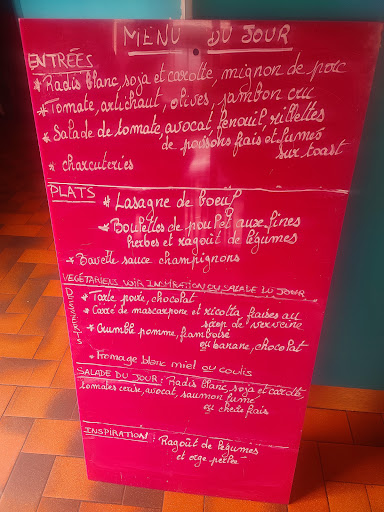 MENU DU JOUR
ENTRÉES
* Radis blanc, soja et carotte, mignon de porc
* Tomate, artichaut, olives, jambon cru
* Salade de tomate, avocat, fenouil, rillettes
de poissons frais et fumés
sur toast
* charcuteries
PLATS
* Lasagne de boeuf
* Boulettes de poulet aux fines
herbes et ragoût de légumes
* Bavette sauce champignons
VEGETARIENS VOIR INSPIRATION OU SALADE DU JOUR
* Tarte poire, chocolat
* Carré de mascarpone et ricotta fraises au
sirop de verveine
* Crumble pomme, framboise
ou banane, chocolat
* Fromage blanc miel ou coulis
SALADE DU JOUR : Radis blanc, soja et carotte,
tomates cerise, avocat, saumon fumé
ou chèvre frais
INSPIRATION : Ragoût de légumes
et orge perlée